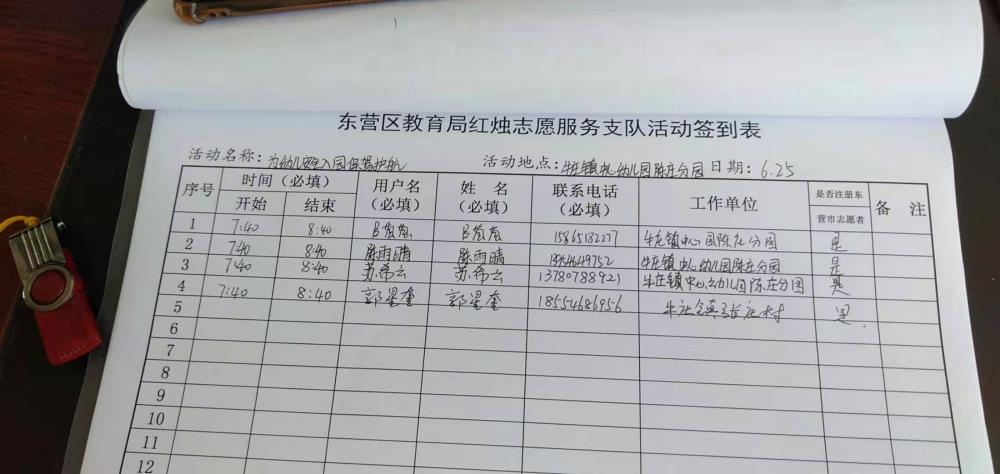 东营区教育局红烛志愿服务支队活动签到表
活动名称：为幼儿安全入园保驾护航 活动地点：牛庄镇中心幼儿园陈庄分园 日期：6.25
序号 时间（必填） 用户名（必填） 姓 名（必填） 联系电话（必填） 工作单位 是否注册东营市志愿者 备 注
开始 结束
1 7:40 8:40 15865182277 牛庄镇中心园陈庄分园 是
2 7:40 8:40 陈雨晴 陈雨晴 牛庄镇中心幼儿园陈庄分园 是
3 7:40 8:40 苏希云 苏希云 13780788921 牛庄镇中心幼儿园陈庄分园 是
4 7:40 8:40 郭星奎 郭星奎 18554686956 牛庄镇张庄村 是
5
6
7
8
9
10
11
12